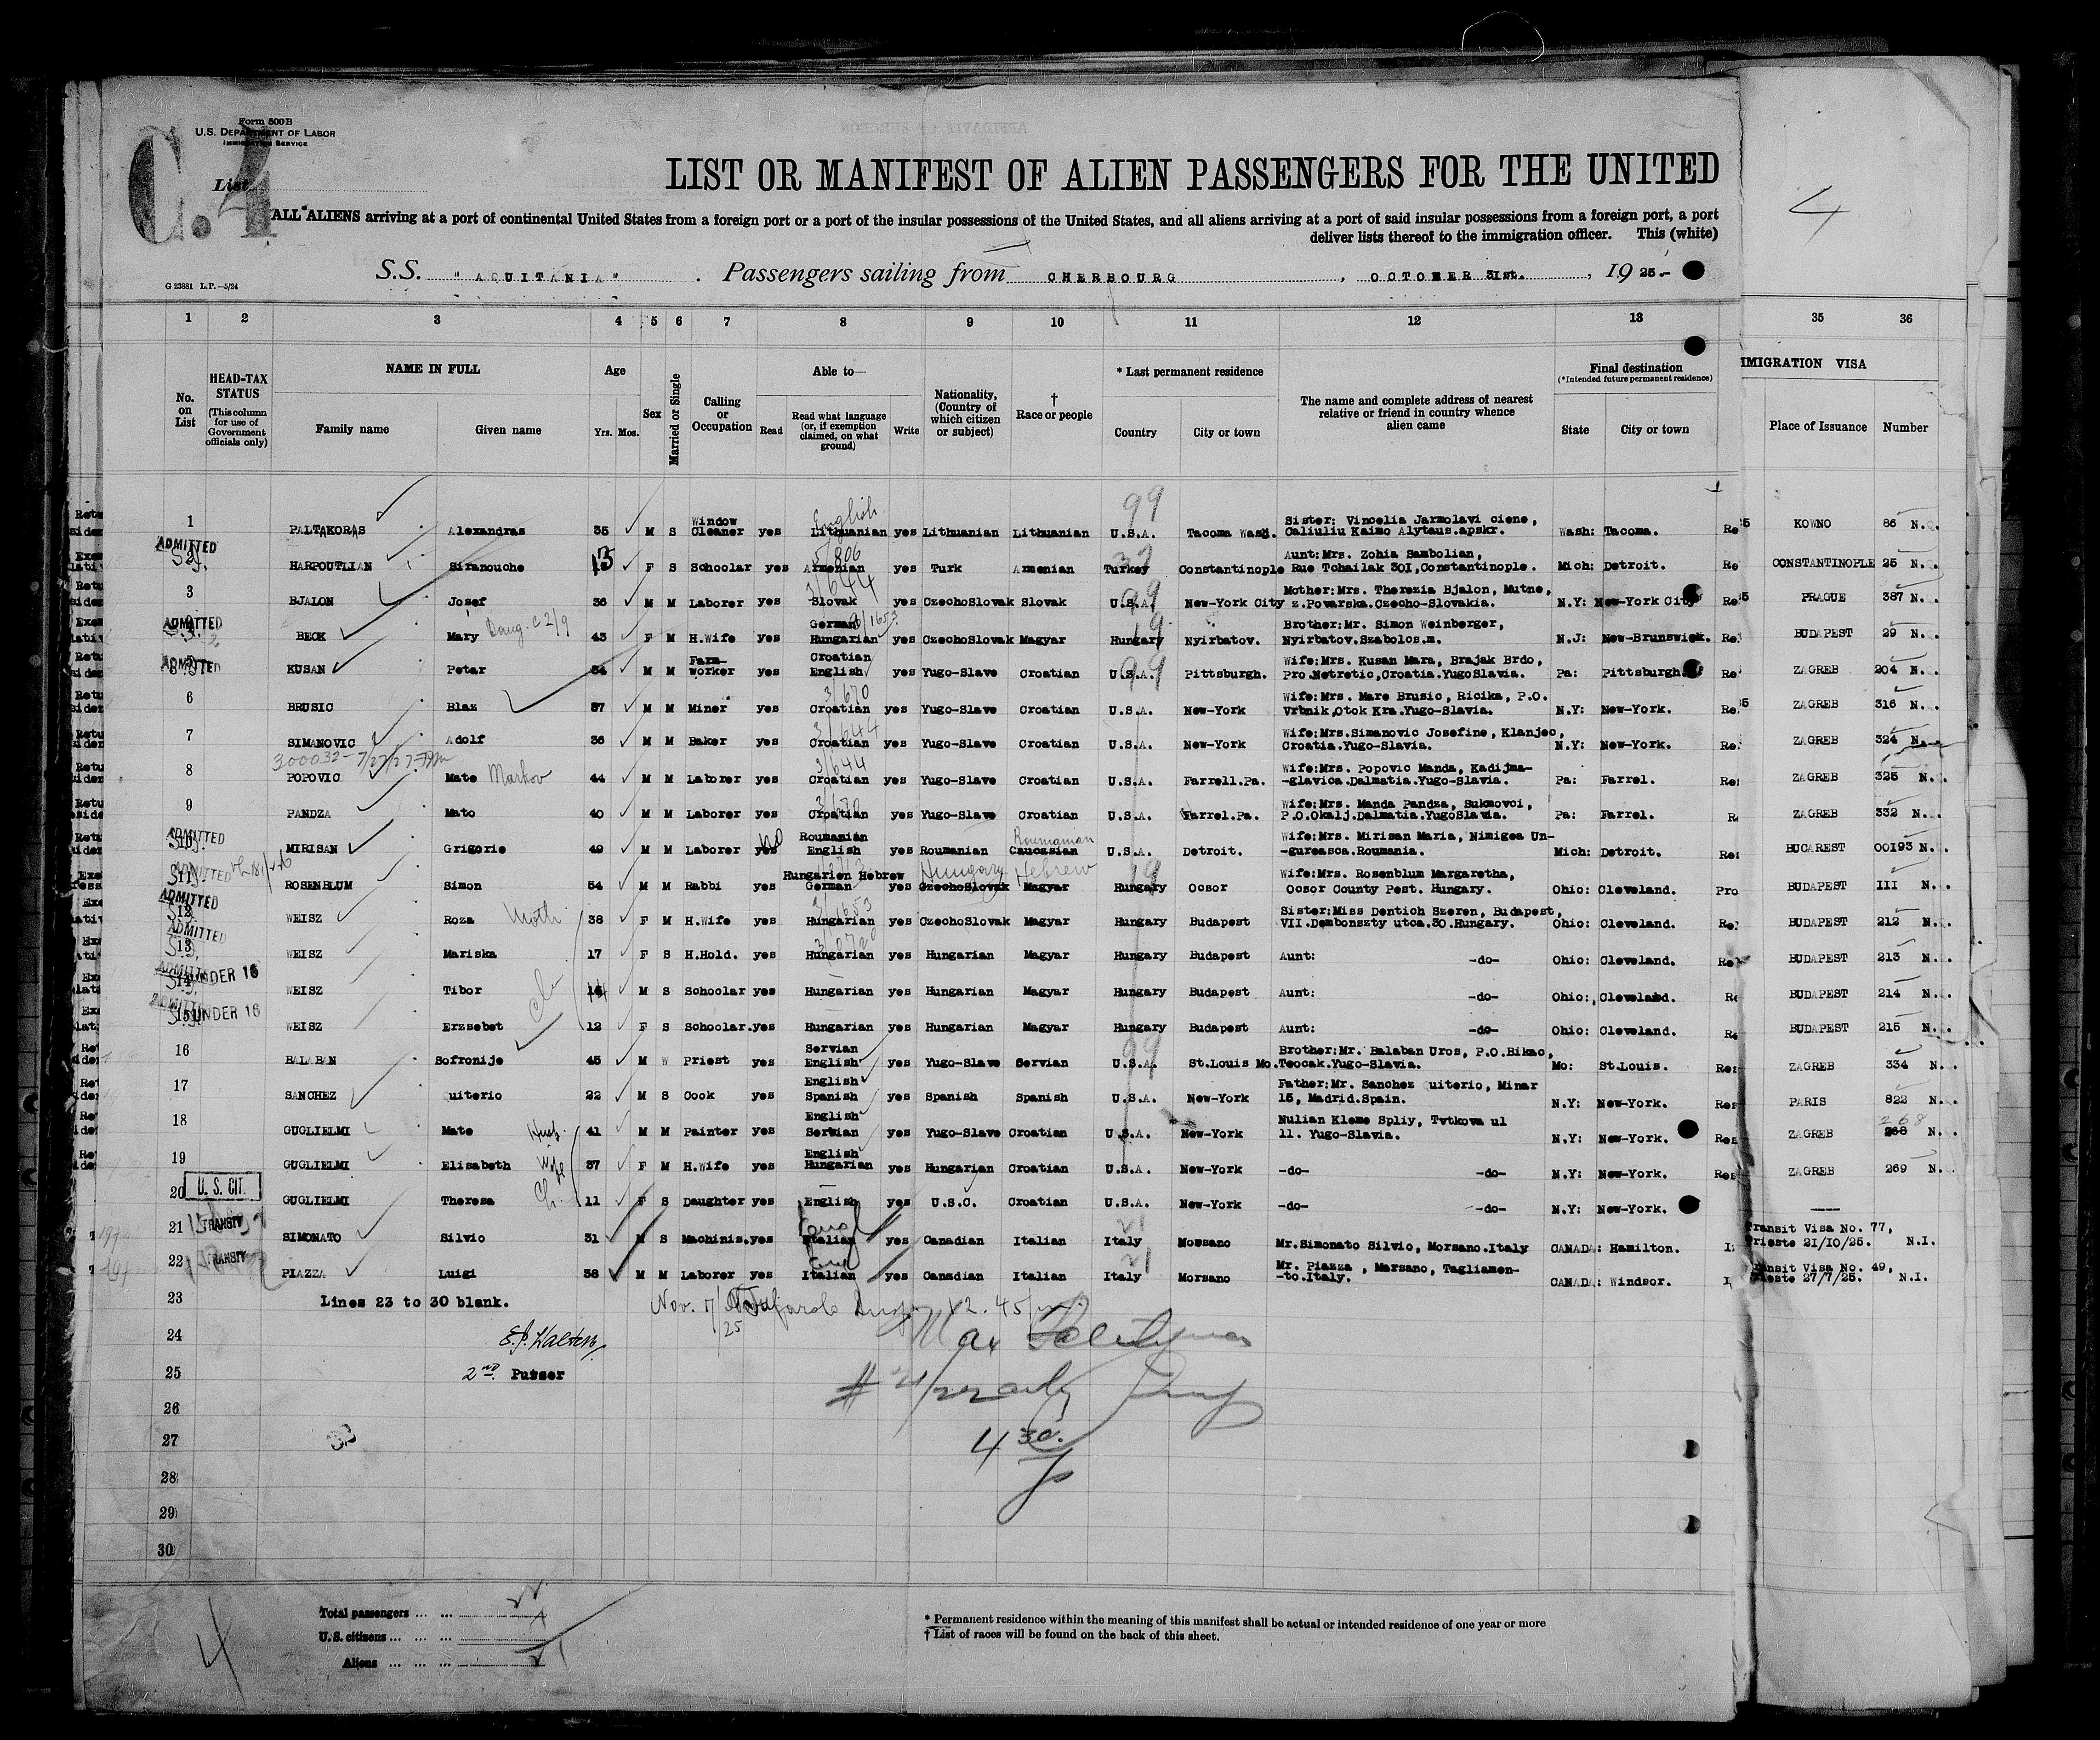 Form 500B
U.S. DEPARTMENT OF LABOR
IMMIGRATION SERVICE
C.4
List
LIST OR MANIFEST OF ALIEN PASSENGERS FOR THE UNITED
ALL ALIENS arriving at a port of continental United States from a foreign port or a port of the insular possessions of the United States, and all aliens arriving at a port of said insular possessions from a foreign port, a port
deliver lists thereof to the immigration officer. This (white)
4
S.S. "AQUITANIA" . Passengers sailing from CHERBOURG , OCTOBER 31st. , 19 25.-
G 23881 L.P.-5/24
1 2 3 4 5 6 7 8 9 10 11 12 13 35 36
No. on List
HEAD-TAX STATUS (This column for use of Government officials only)
NAME IN FULL
Family name Given name
Age
Yrs. Mos.
Sex
Married or Single
Calling or Occupation
Able to—
Read
Read what language (or, if exemption claimed, on what ground)
Write
Nationality, (Country of which citizen or subject)
† Race or people
* Last permanent residence
Country City or town
The name and complete address of nearest relative or friend in country whence alien came
Final destination
(*Intended future permanent residence)
State City or town
IMMIGRATION VISA
Place of Issuance Number
1 PALTAKORAS Alexandras 35 M S Window Cleaner yes English Lithuanian yes Lithuanian Lithuanian 99 U.S.A. Tacoma Wash. Sister: Vincelia Jarmolavi ciene, Caliuliu Kaimo Alytaus.apskr. Wash: Tacoma. KOWNO 86 N.
ADMITTED
2 HARPOUTLIAN Siranouche 13 F S Schoolar yes 5/806 Armenian yes Turk Armenian Turkey Constantinople Aunt:Mrs. Zohia Sambolian, Rue Tchailak 301,Constantinople. Mich: Detroit. CONSTANTINOPLE 25 N.
3 BJALON Josef 36 M M Laborer yes 3/644 Slovak yes CzechoSlovak Slovak 99 U.S.A. New-York City Mother:Mrs. Therezia Bjalon, Mutne, z.Povarska.Czecho-Slovakia. N.Y: New-York City PRAGUE 387 N.
ADMITTED
BECK Mary 43 F M H.Wife yes German Hungarian yes CzechoSlovak Magyar 19 Hungary Nyirbatov. Brother:Mr. Simon Weinberger, Nyirbatov.Szabolcs.m. N.J: New-Brunswick. BUDAPEST 29 N.
ADMITTED
KUSAN Petar 34 M M Farm-worker yes Croatian English yes Yugo-Slave Croatian 99 U.S.A. Pittsburgh. Wife:Mrs. Kusan Mara, Brajak Brdo, Pro.Netretic,Croatia.YugoSlavia. Pa: Pittsburgh. ZAGREB 204 N.
6 BRUSIC Blaz 37 M M Miner yes 3/670 Croatian yes Yugo-Slave Croatian U.S.A. New-York Wife:Mrs. Mare Brusic, Ricika, P.O. Vrbnik,Otok Krs.Yugo-Slavia. N.Y: New-York. ZAGREB 316 N.
7 SIMANOVIC Adolf 36 M M Baker yes 3/644 Croatian yes Yugo-Slave Croatian U.S.A. New-York Wife:Mrs.Simanovic Josefine, Klanjec, Croatia.Yugo-Slavia. N.Y: New-York. ZAGREB 324 N.
300032-7/27/27
8 POPOVIC Mate Markov 44 M M Laborer yes 3/644 Croatian yes Yugo-Slave Croatian U.S.A. Farrell.Pa. Wife:Mrs. Popovic Manda, Kadijma--glavica.Dalmatia.Yugo-Slavia. Pa: Farrel. ZAGREB 325 N.
9 PANDZA Mato 40 M M Laborer yes 3/670 Croatian yes Yugo-Slave Croatian U.S.A. Farrel.Pa. Wife:Mrs. Manda Pandza, Suknovci, P.O.Okalj.Dalmatia.YugoSlavia. Pa: Farrel. ZAGREB 332 N.
ADMITTED
10 MIRISAN Grigorie 49 M M Laborer yes No Roumanian English yes Roumanian Caucassian Roumanian U.S.A. Detroit. Wife:Mrs. Mirisan Maria, Nimigea Un--gureasca.Roumania. Mich: Detroit. BUCAREST 00193 N.
ADMITTED
11 ROSENBLUM Simon 54 M M Rabbi yes Hungarien Hebrew German yes CzechoSlovak Hungary Magyar Hebrew 19 Hungary Ocsor Wife:Mrs. Rosenblum Margaretha, Ocsor County Pest. Hungary. Ohio: Cleveland. BUDAPEST III N.
ADMITTED
12 WEISZ Roza Moth 38 F M H.Wife yes Hungarian yes CzechoSlovak Magyar Hungary Budapest Sister:Miss Dentich Szeren, Budapest, VII.Dembonszty utca.30.Hungary. Ohio: Cleveland. BUDAPEST 212 N.
ADMITTED
13 WEISZ Mariska 17 F S H.Hold. yes Hungarian yes Hungarian Magyar Hungary Budapest Aunt: -do- Ohio: Cleveland. BUDAPEST 213 N.
ADMITTED UNDER 16
14 WEISZ Tibor 14 M S Schoolar yes Hungarian yes Hungarian Magyar Hungary Budapest Aunt: -do- Ohio: Cleveland. BUDAPEST 214 N.
ADMITTED UNDER 16
15 WEISZ Erzsebet 12 F S Schoolar.yes Hungarian yes Hungarian Magyar Hungary Budapest Aunt: -do- Ohio: Cleveland. BUDAPEST 215 N.
16 BALABAN Sofronije 45 M W Priest yes Servian English yes Yugo-Slave Servian 99 U.S.A. St.Louis Mo. Brother:Mr. Balaban Uros, P.O.Bikao, Teocak.Yugo-Slavia. Mo: St.Louis. ZAGREB 334 N.
17 SANCHEZ uiterio 22 M S Cook yes English Spanish yes Spanish Spanish U.S.A. New-York Father:Mr. Sanchez uiterio, Minar 15, Madrid.Spain. N.Y: New-York. PARIS 822 N.
18 GUGLIELMI Mate Husb. 41 M M Painter yes English Serbian yes Yugo-Slave Croatian U.S.A. New-York Nulian Kleme Spliy, Tvtkova ul 11. Yugo-Slavia. N.Y: New-York. ZAGREB 268 268 N.
19 GUGLIELMI Elisabeth Wife 37 F M H.Wife yes English Hungarian yes Hungarian Croatian U.S.A. New-York -do- -do- N.Y: New-York. ZAGREB 269 N.
20 U. S. CIT. GUGLIELMI Theresa Ch. 11 F S Daughter yes English yes U.S.C. Croatian U.S.A. New-York -do- -do- N.Y: New-York.
21 TRANSIT SIMONATO Silvio 31 M S Machinis.yes Engl Italian yes Canadian Italian 21 Italy Morsano Mr.Simonato Silvio, Morsano.Italy CANADA: Hamilton. Transit Visa No. 77, Trieste 21/10/25. N.I.
22 TRANSIT PIAZZA Luigi 38 M M Laborer yes Eng Italian yes Canadian Italian 21 Italy Morsano Mr. Piazza , Marsano, Tagliamen--to.Italy. CANADA: Windsor. Transit Visa No. 49, Trieste 27/7/25. N.I.
23 Lines 23 to 30 blank.
Nov. 7/25 12.45
24
2nd. Purser
25
26
27
4 30
28
29
30
Total passengers ... ... 22
U.S. citizens ... ... ... 1
Aliens ... ... ... 21
4
* Permanent residence within the meaning of this manifest shall be actual or intended residence of one year or more
† List of races will be found on the back of this sheet.